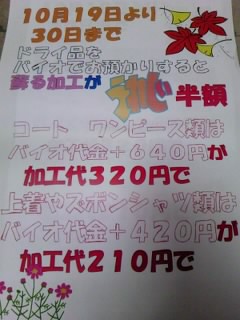 10月19日より
30日まで
ドライ品を
バイオでお預かりすると
蘇る加工が うれしい 半額
コート ワンピース類は
バイオ代金+640円か
加工代320円で
上着やズボンシャツ類は
バイオ代金+420円か
加工代210円で